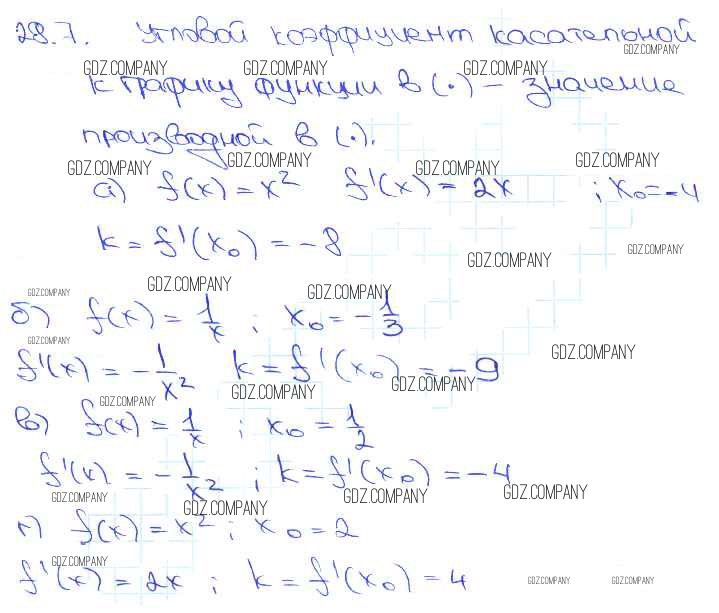 28.7. Угловой коэффициент касательной
GDZ.COMPANY
GDZ.COMPANY GDZ.COMPANY GDZ.COMPANY
к графику функции в (·) – значение
производной в (·).
GDZ.COMPANY GDZ.COMPANY GDZ.COMPANY GDZ.COMPANY
а) f(x) = x² f'(x) = 2x ; x₀ = -4
k = f'(x₀) = -8
GDZ.COMPANY GDZ.COMPANY
GDZ.COMPANY GDZ.COMPANY GDZ.COMPANY
б) f(x) = 1/x ; x₀ = -1/3
GDZ.COMPANY GDZ.COMPANY
f'(x) = -1/x² k = f'(x₀) = -9
GDZ.COMPANY GDZ.COMPANY GDZ.COMPANY
в) f(x) = 1/x ; x₀ = 1/2
f'(x) = -1/x² ; k = f'(x₀) = -4
GDZ.COMPANY GDZ.COMPANY GDZ.COMPANY
GDZ.COMPANY
г) f(x) = x² ; x₀ = 2
GDZ.COMPANY
f'(x) = 2x ; k = f'(x₀) = 4
GDZ.COMPANY GDZ.COMPANY